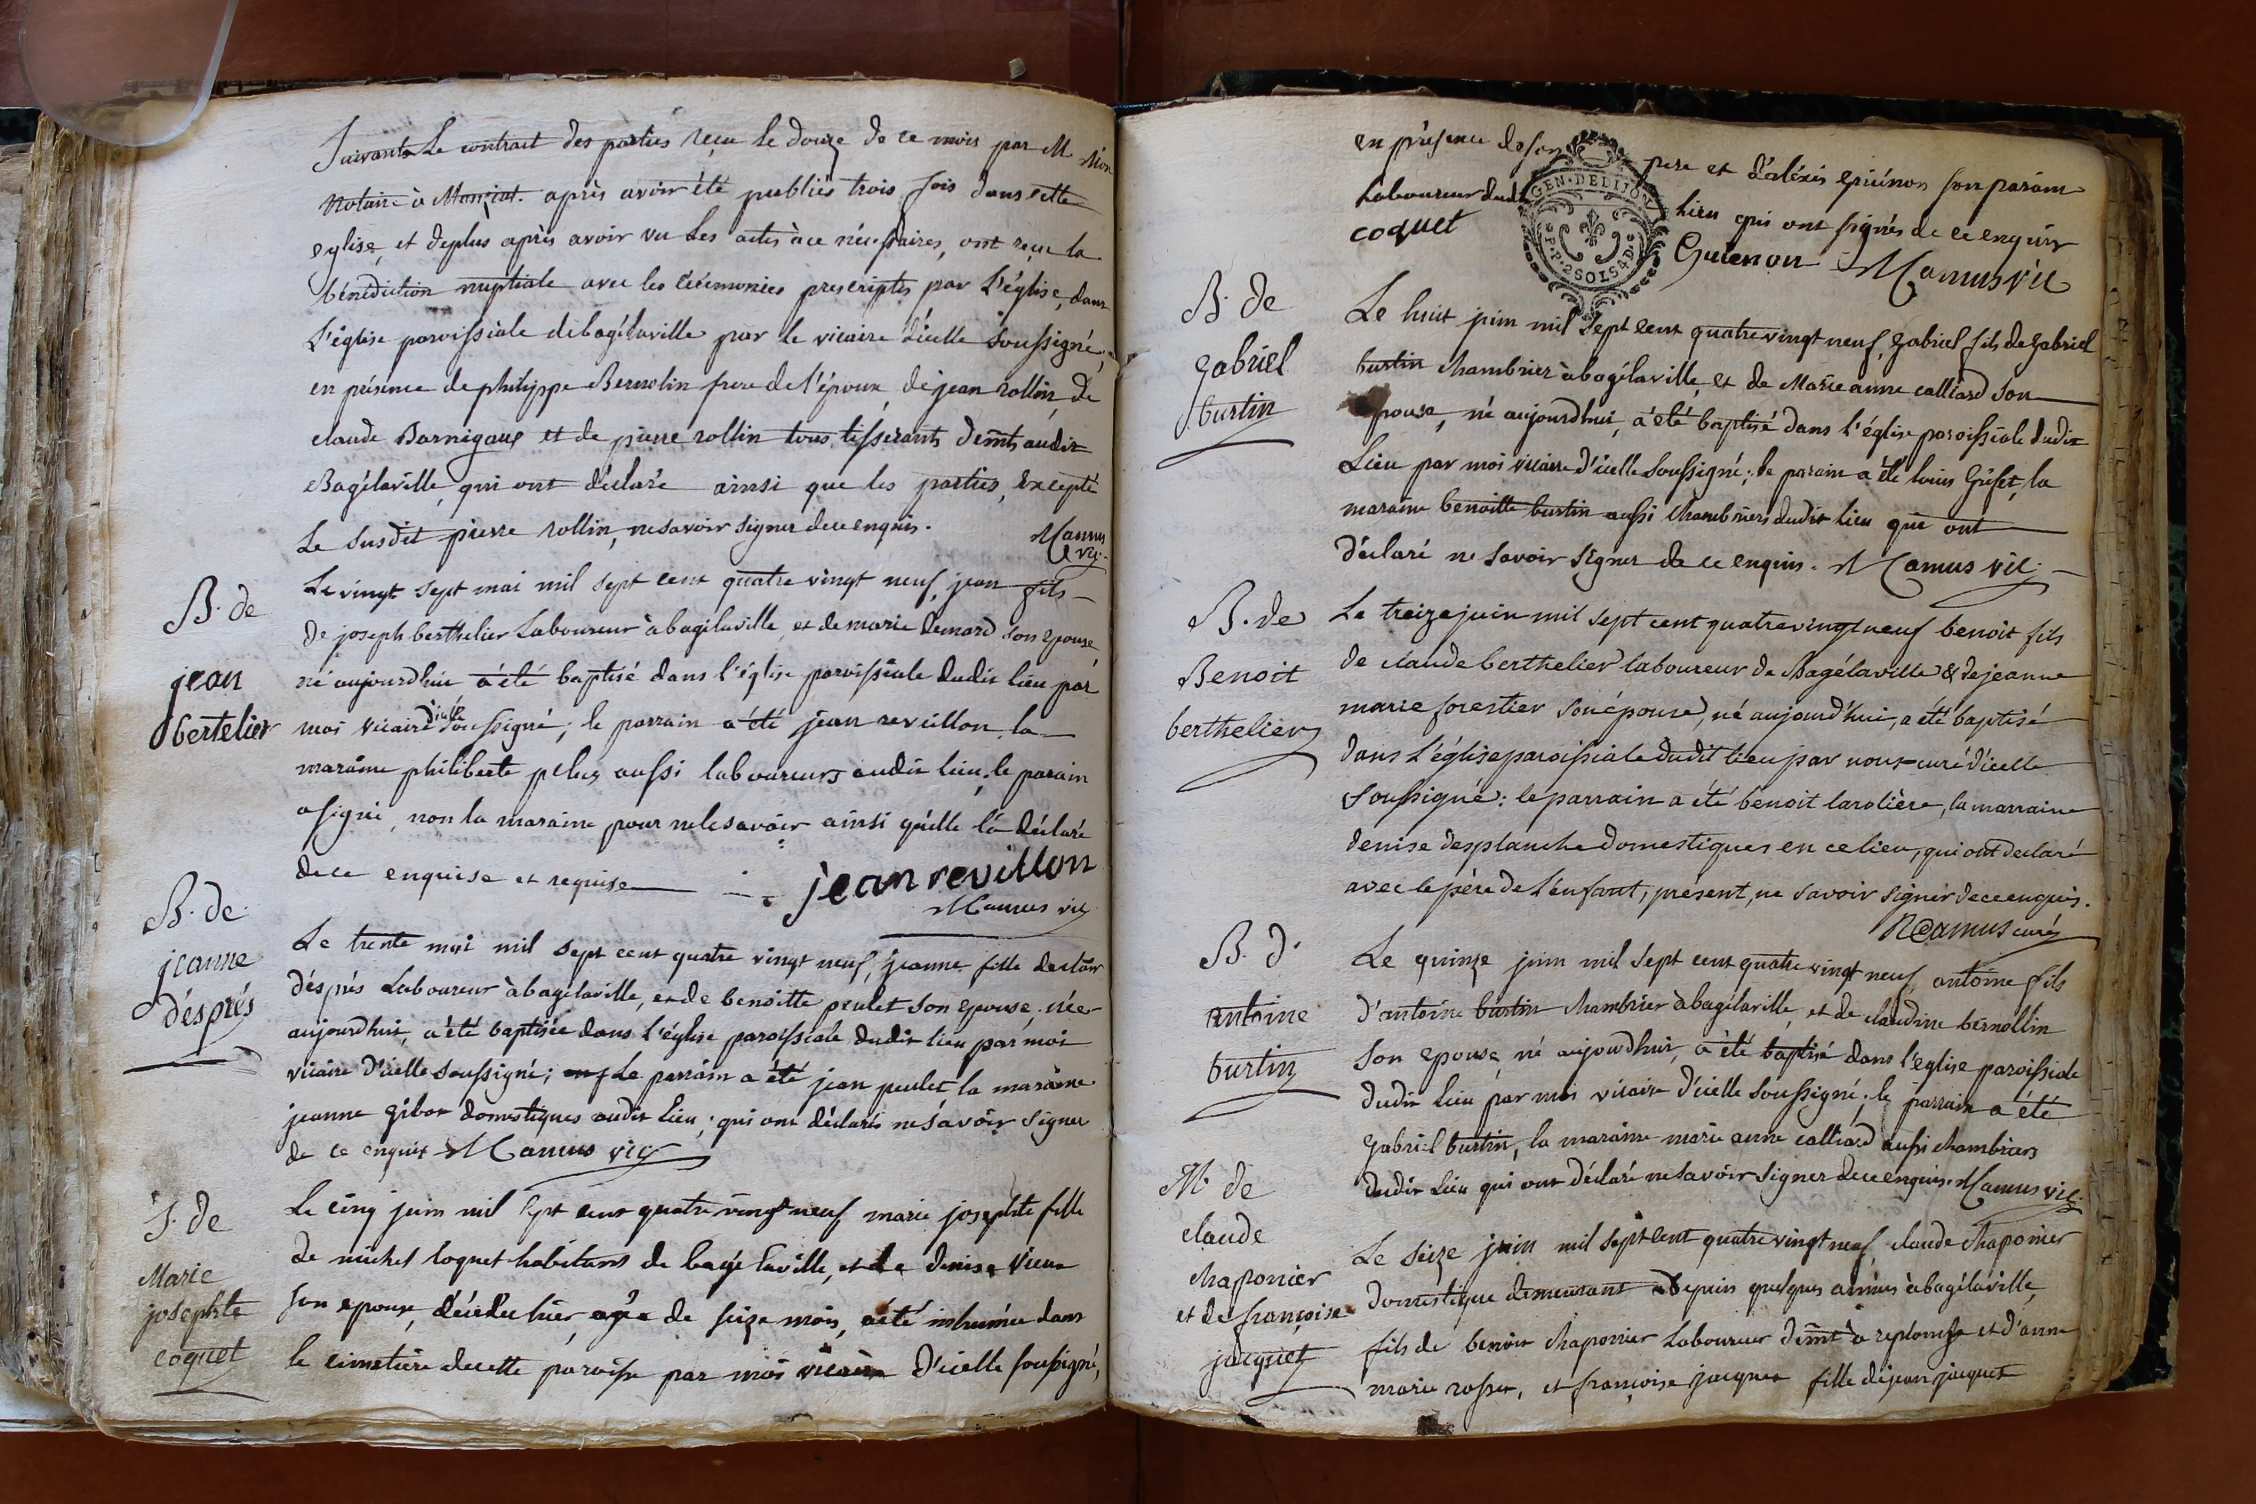 Suivant Le contrat des parties reçu le douze de ce mois par M
Notaire à après avoir été publiés trois fois dans cette
eglise, et deplus après avoir vu les actes à ce nécessaires, ont reçu la
bénédiction nuptiale avec les cérémonies prescriptes par L'église, dans
L'église paroissiale debagélaville par le vicaire d'icelle soussigné,
en présence de philippe Bernolin frere de l'époux, de jean rollin, de
claude Barnigaus et de pierre rollin tous tisserants demts audit
Bagélaville, qui ont déclaré ainsi que les parties, Excepté
Le susdit pierre rollin, ne savoir signer dece enquis. M Camus
vic.
B. de
jean
bertelier
Le vingt sept mai mil sept cent quatre vingt neuf, jean fils
de joseph berthelier Laboureur à bagélaville, et de marie Demard son epouse,
né aujourdhui a été baptisé dans l'église paroissiale dudit lieu par
moi vicaire d'icelle soussigné; le parrain a été jean revillon la
maraine philiberte pelus aussi laboureurs audit lieu; le parain
a signé, non la maraine pour nele savoir ainsi qu'elle l'a déclaré
de ce enquise et requise jean revillon
M Camus vic
B. de
jeanne
désprés
Le trente mai mil sept cent quatre vingt neuf, jeanne fille
désprés Laboureur à bagélaville, et de benoitte peulet son epouse, née
aujourdhui, a été baptisée dans l'église paroissiale dudit lieu par moi
vicaire d'icelle soussigné; Le parrain a été jean peulet la maraine
jeanne gibot domestiques audit Lieu; qui ont déclarés ne savoir signer
de ce enquis M Camus vic
S. de
Marie
josephte
coquet
Le cinq juin mil sept cent quatre vingt neuf marie josephte fille
de michel coquet habitant de bagé laville, et de denise vieux
son epouse, décédée hier agée de seize mois, a été inhumée dans
le cimetière decette paroisse par moi vicaire d'icelle soussigné,
en présence de son pere et d'aléxis guienon son parain
Laboureur dudit Lieu qui ont signés de ce enquis
coquet Guienon M Camus vic
GEN. DE DIJON
P.P. 2 SOLS 4 D.
B. de
gabriel
burtin
Le huit juin mil sept cent quatre vingt neuf, gabriel fils de gabriel
burtin chambrier à bagélaville, et de Marie anne calliard son
epouse, né aujourdhui, a été baptisé dans l'église paroissiale dudit
Lieu par moi vicaire d'icelle soussigné; le parain a été louis Griset, la
maraine benoitte burtin aussi chambriers dudit lieu qui ont
déclaré ne savoir signer de ce enquis. M Camus vic.
B. de
Benoit
berthelier
Le treize juin mil sept cent quatre vingt neuf benoit fils
de claude berthelier laboureur de Bagélaville & de jeanne
marie forestier son épouse, né aujourd'hui, a été baptisé
dans L'église paroissiale dudit lieu par nous curé d'icelle
soussigné: le parrain a été benoit larolière, la marraine
denise desplanche domestiques en ce lieu, qui ont déclaré
avec le père de L'enfant, présent, ne savoir signer dece enquis.
Camus curé
B. d'
antoine
burtin
Le quinze juin mil sept cent quatre vingt neuf, antoine fils
d'antoine burtin chambrier à bagélaville, et de claudine bernollin
son epouse né aujourdhui, a été baptisé dans l'eglise paroissiale
dudit Lieu par moi vicaire d'icelle soussigné; le parrain a été
gabriel burtin, la maraine marie anne calliard aussi chambriers
dudit Lieu qui ont déclaré ne savoir signer de ce enquis. M Camus vic.
M. de
claude
chaponier
et de françoise
jacquet
Le seize juin mil sept cent quatre vingt neuf, claude chaponier
domestique demeurant depuis quelques années à bagélaville,
fils de benoit chaponier Laboureur demt à replonge et d'anne
marie rosset, et françoise jacquet fille de jean jacquet